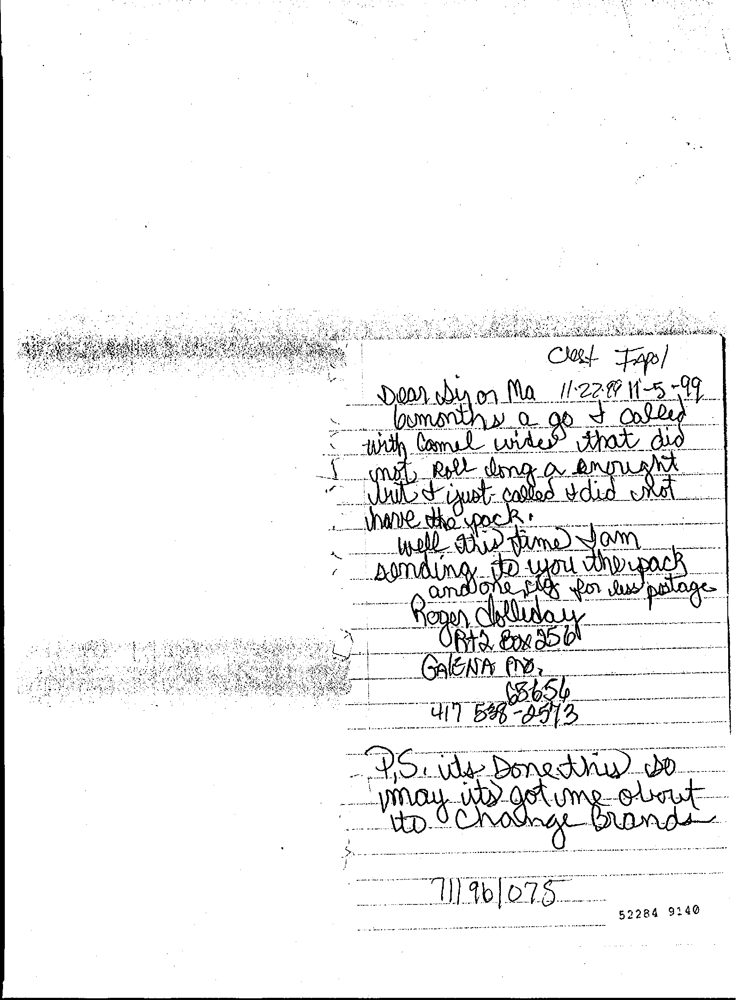 Dear Sir or Ma 11-22-99 11-5-99
6 months a go I called
with Camel wides that did
not Roll long a enought
but I just called I did not
have the pack.
well this time I am
sending to you the pack
and one cig for less postage
Roger Holliday
Rt2 Box 256
GALENA MO,
65656
417 538-2573
P,S. its Done this so
may its got me about
to Change Brands
711961075
52284 9140